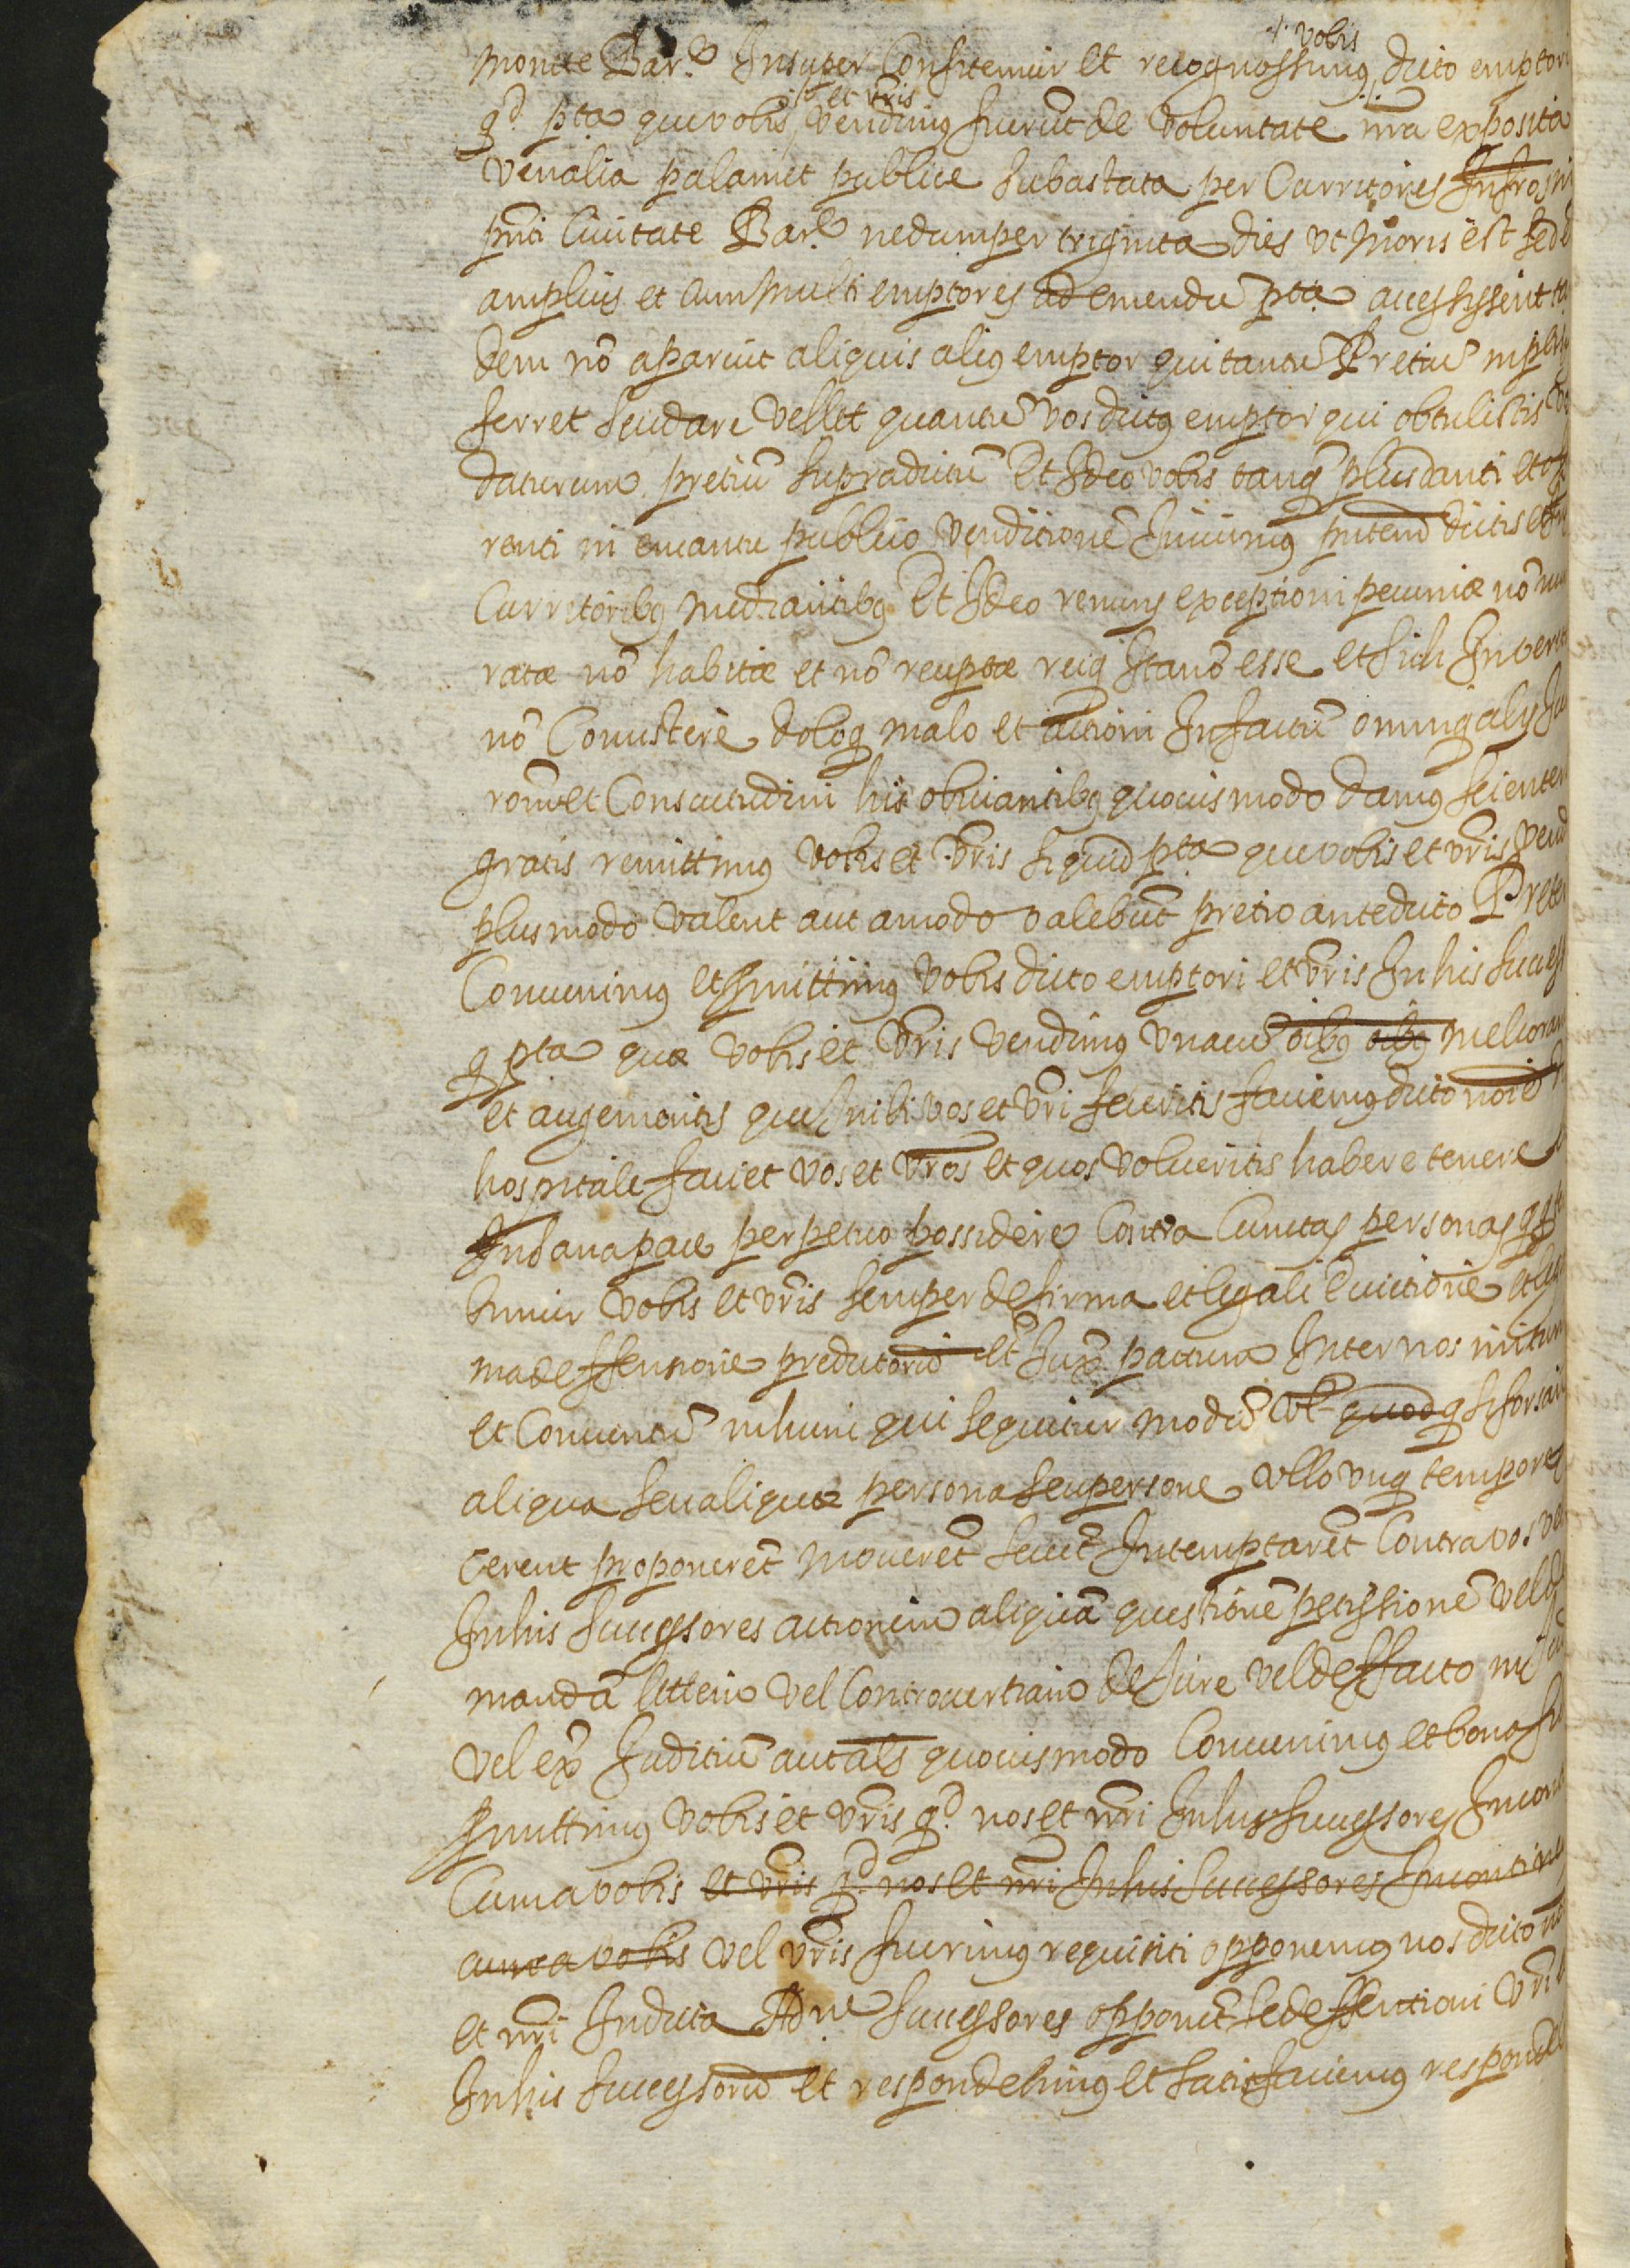 monete Bar.e Insuper Confitemur et recognossimus ./. vobis dicto emptori
qd. pta. que vobis /. et vris vendimus fuerut de voluntate nra exposita
venalia palam et publice subastata per Curritores Infros in
pnti Civitate Bar.e nedum per triginta dies ut moris est sed et
amplius et cum multi emptores ad emendu pta. accessissent
dem no aparuit aliquis alius emptor qui tantu Pretiu in
ferret seu dare vellet quantu vos dictus emptor qui obtulistis
daturum pretiu supradictu Et Ideo vobis tanq plus danti et
renti in encantu publico venditione fecimus pntem dictis et
Curritoribus mediantibus Et Ideo renuns exceptioni pecuniæ no nu
ratæ no habitæ et no receptæ reiq Ita no esse et sich In
no Consistere doloq malo et actioni In factu omniq alij
romet Consuetudini his obviantibus quovis modo damus scienter
gratis remittimus vobis et vris siquid pta. que vobis et vris vend
plus modo valent aut amodo valebut pretio antedicto Preter
Convenimus et pmittimus vobis dicto emptori et vris In his success
q pta quæ vobis et vris vendimus una cu oibus oibus meliora
et augmentis que Inibi vos et vri feceritis faciemus dicto noie
hospitale faciet vos et vros et quos volueritis habere tenere
In sana pace perpetuo possidere Contra Cunctas personas
bimur vobis et vris semper de firma et legali Evictione et
ma deffensione predictoru et Jux. pactum Inter nos initum
et Conventu in hunc qui sequitur modu Vt quod q si forsan
aliqua seu aliquæ persona seu persone ullo unq tempore
cerent proponeret moveret seu et Intemptaret Contra vos
In his successores actionem aliqua questione petissione vel
manda littem vel Controvertiam de Jure vel de ffacto in
vel ex Juditiu aut als quovismodo Convenimus et bona
pmittimus vobis et vris qd. nos et nri In his successores
Cum a vobis et vris qd. nos et nri In his successores Incontine
cum a vobis vel vris fuerimus requisiti opponemus nos dicto
et nri In dicta Adne successores opponet se deffentioni vri
In his successoru et respondebimus et satisfaciemus